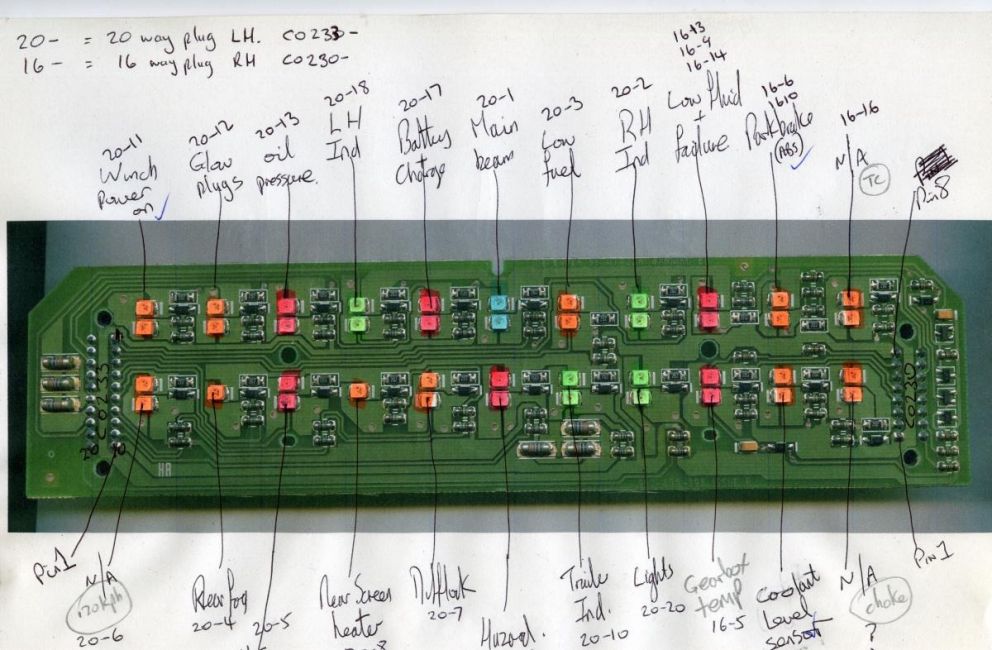 20- = 20 way plug LH. C0233-
16- = 16 way plug RH C0230-
20-11
Winch
Power
on
20-12
Glow
plugs
20-13
oil
pressure.
20-18
LH
Ind
20-17
Battery
Charge
20-1
Main
beam
20-3
Low
fuel
20-2
RH
Ind
16-13
16-9
16-14
Low fluid
+
failure
16-6
1610
Parkbrake
(ABS)
16-16
N/A
TC
Pin8
C0233
20
10
HA
C0230
Pin1
N/A
120kph
20-6
Rear fog
20-4
20-5
Rear Screen
heater
Difflock
20-7
Hazard.
Trailer
Ind.
20-10
Lights
20-20
Gearbox
temp
16-5
Coolant
Level
sensor
N/A
choke
?
Pin1